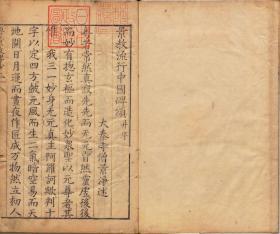 景教流行中國碑頌并序
大秦寺僧景淨述
粵若常然真寂先先而无元窅然靈虛後後
而妙有揔玄樞而造化妙衆聖以元尊者其
惟我三一妙身无元真主阿羅訶歟判十
字以定四方鼓元風而生二氣暗空易而天
地開日月運而晝夜作匠成万物然立初人